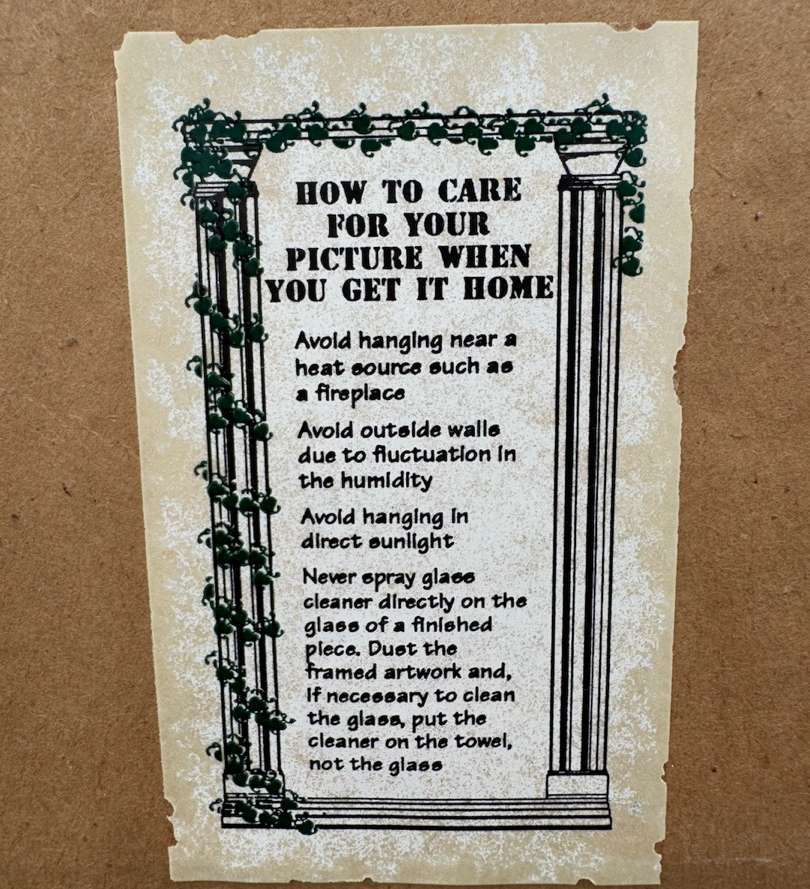 HOW TO CARE
FOR YOUR
PICTURE WHEN
YOU GET IT HOME
Avoid hanging near a
heat source such as
a fireplace
Avoid outside walls
due to fluctuation in
the humidity
Avoid hanging in
direct sunlight
Never spray glass
cleaner directly on the
glass of a finished
piece. Dust the
framed artwork and,
if necessary to clean
the glass, put the
cleaner on the towel,
not the glass